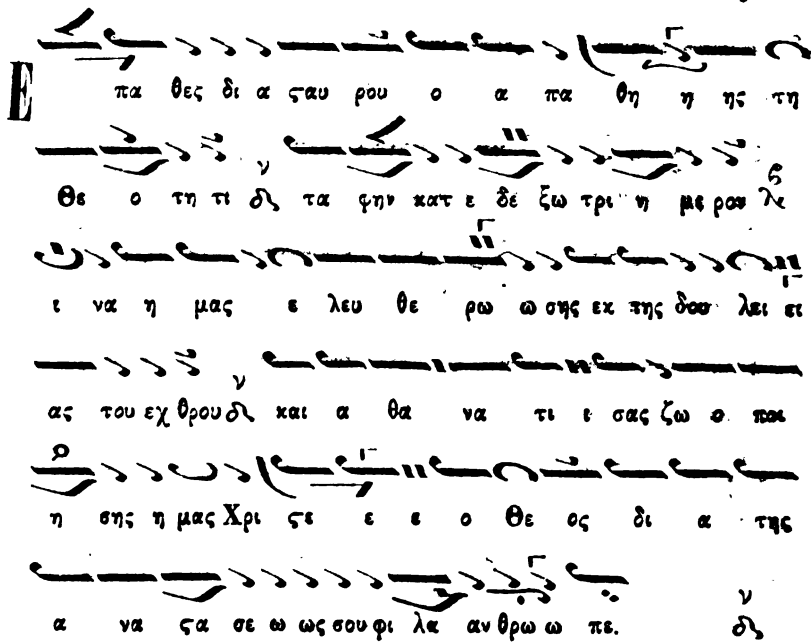 Ε πα θες δι α ϛαυ ρου ο α πα θη η ης τη
Θε ο τη τι δι τα φην κατ ε δε ξω τρι η με ρον λε
ι να η μας ε λευ θε ρω ω σης εκ της δου λει ει
ας του εχ θρου δι και α θα να τι ι σας ζω ο ποι
η σης η μας Χρι ϛε ε ε ο Θε ος δι α της
α να ϛα σε ω ως σου φι λα αν θρω ω πε. δι